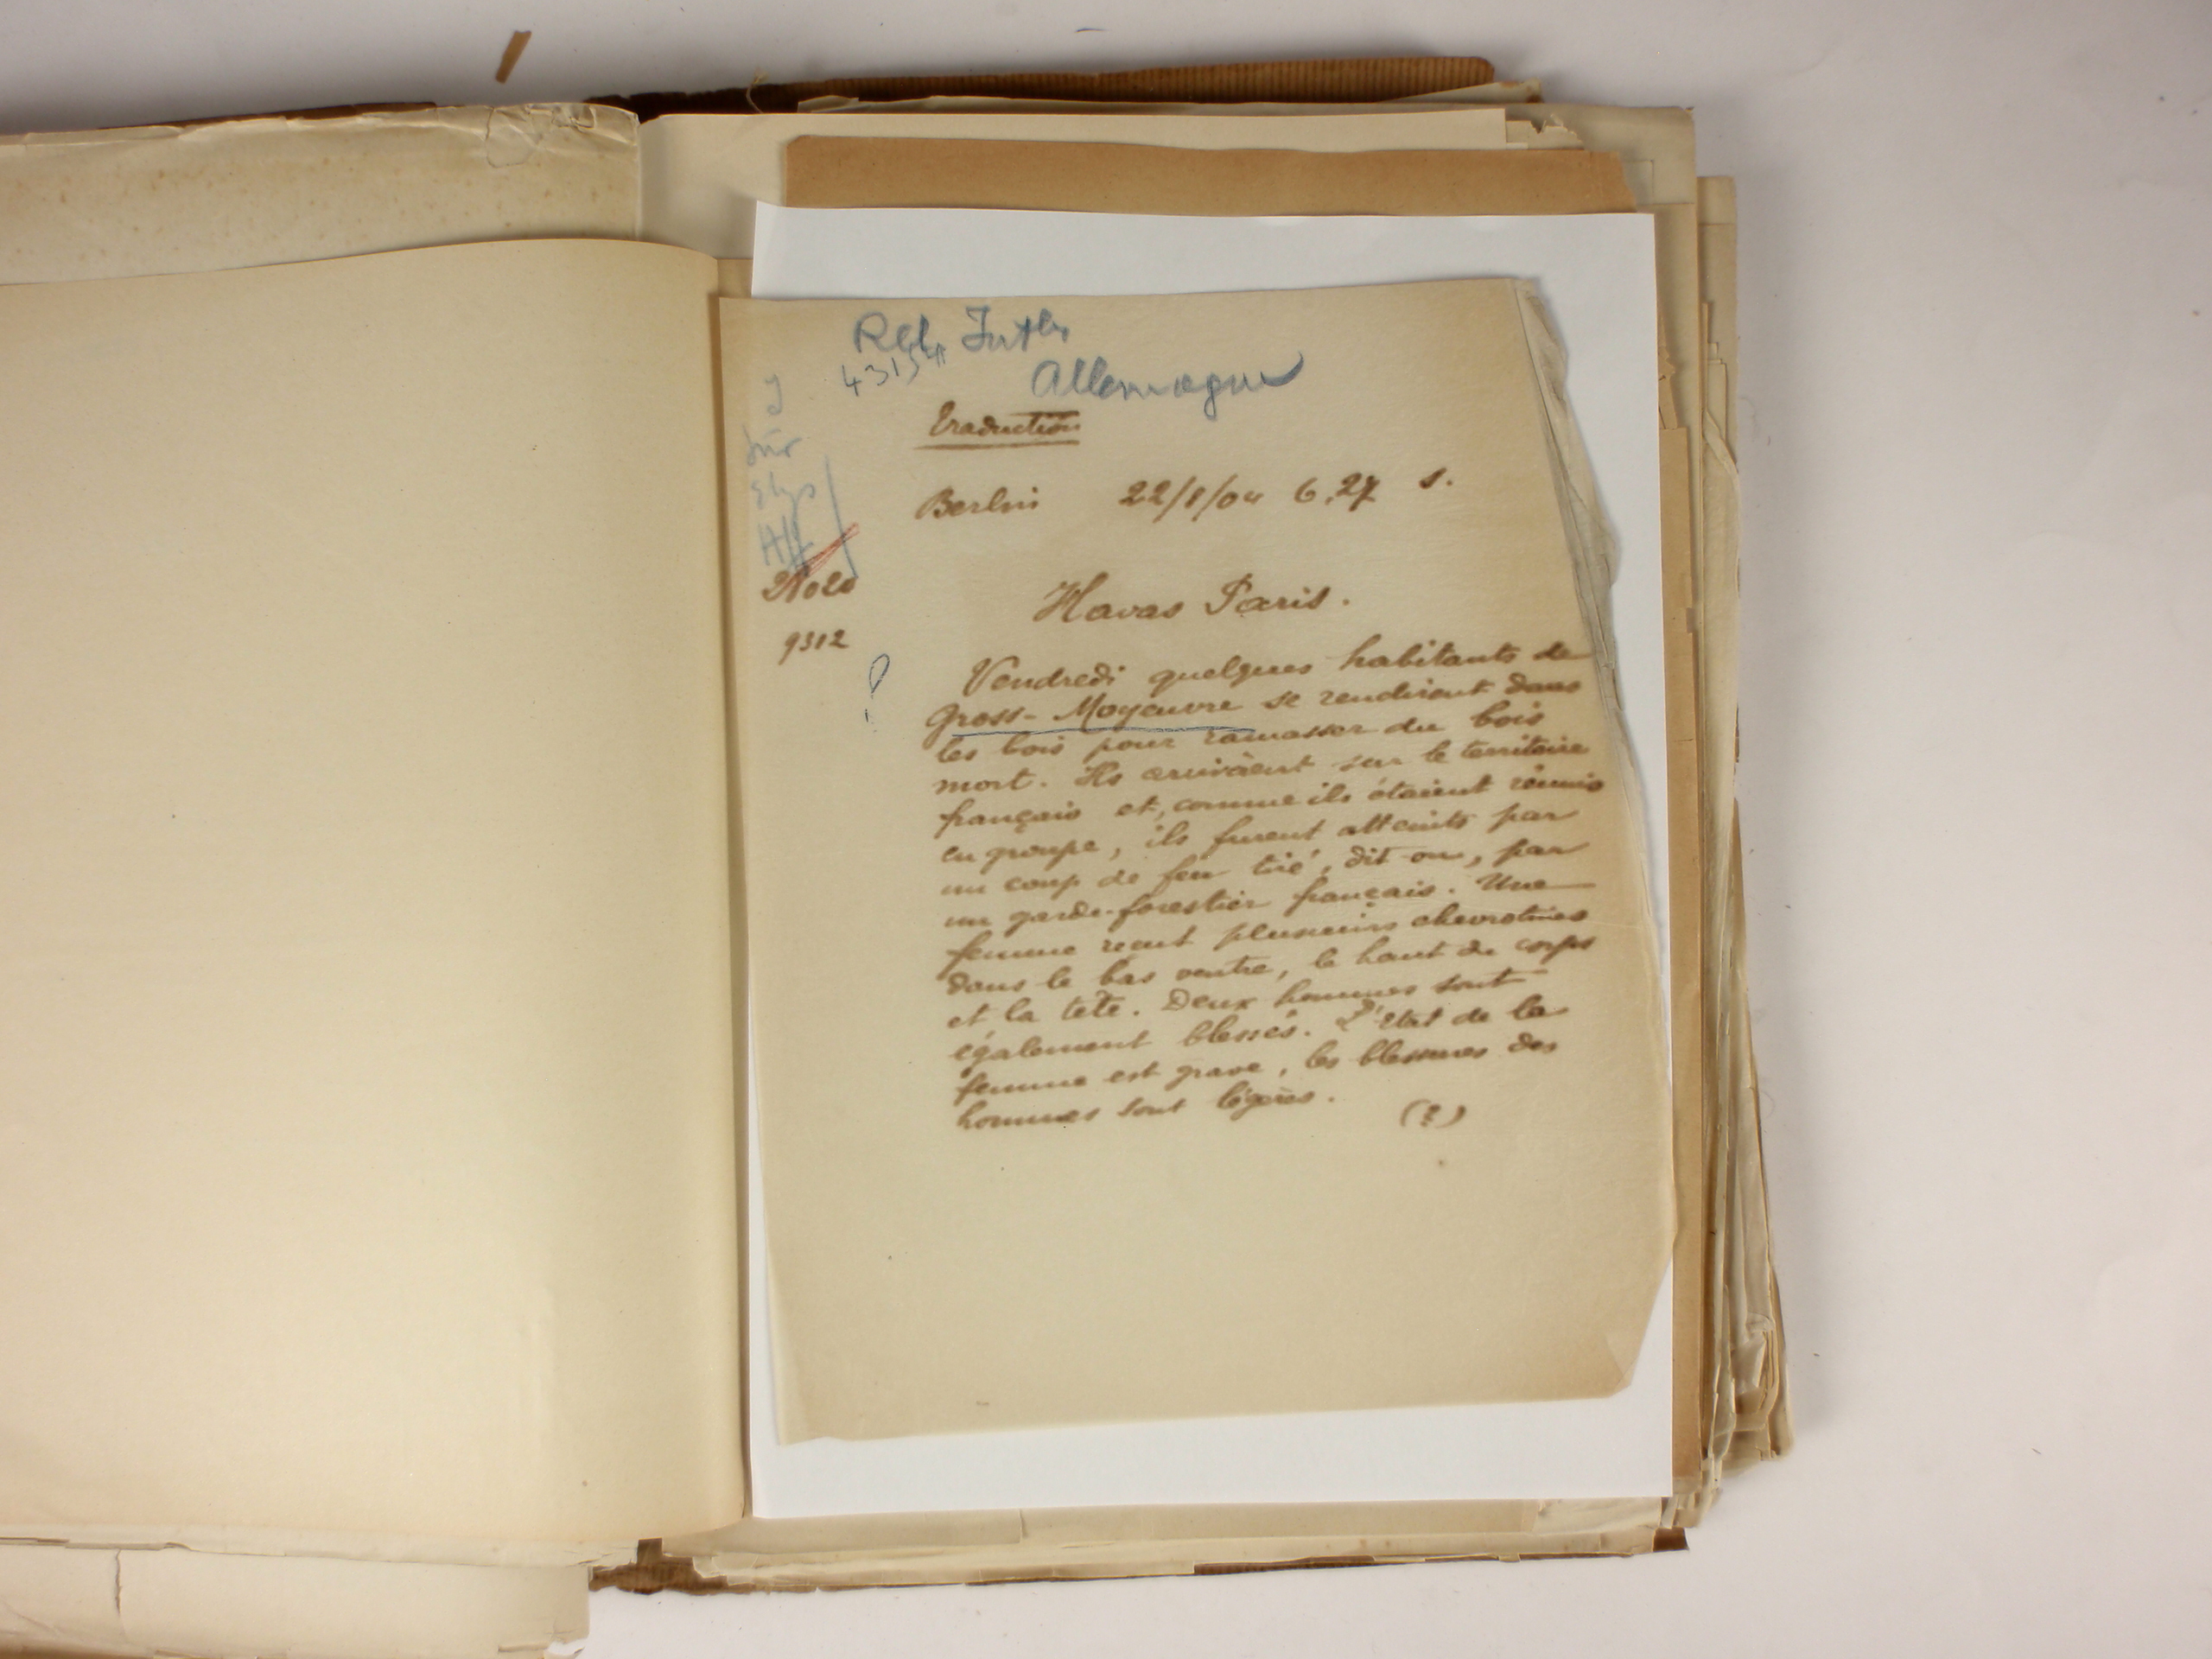 Allemagne
Traduction
Berlin 22/8/04 6,27 s.
9312
Havas Paris.
Vendredi quelques habitants de
Gross-Moyeuvre se rendirent dans
les bois pour ramasser du bois
mort. Ils arrivèrent sur le territoire
français et, comme ils étaient réunis
en groupe, ils furent atteints par
un coup de feu tiré, dit-on, par
un garde-forestier français. Une
femme reçut plusieurs chevrotines
dans le bas ventre, le haut du corps
et la tête. Deux hommes sont
également blessés. L'état de la
femme est grave, les blessures des
hommes sont légères.
(?)